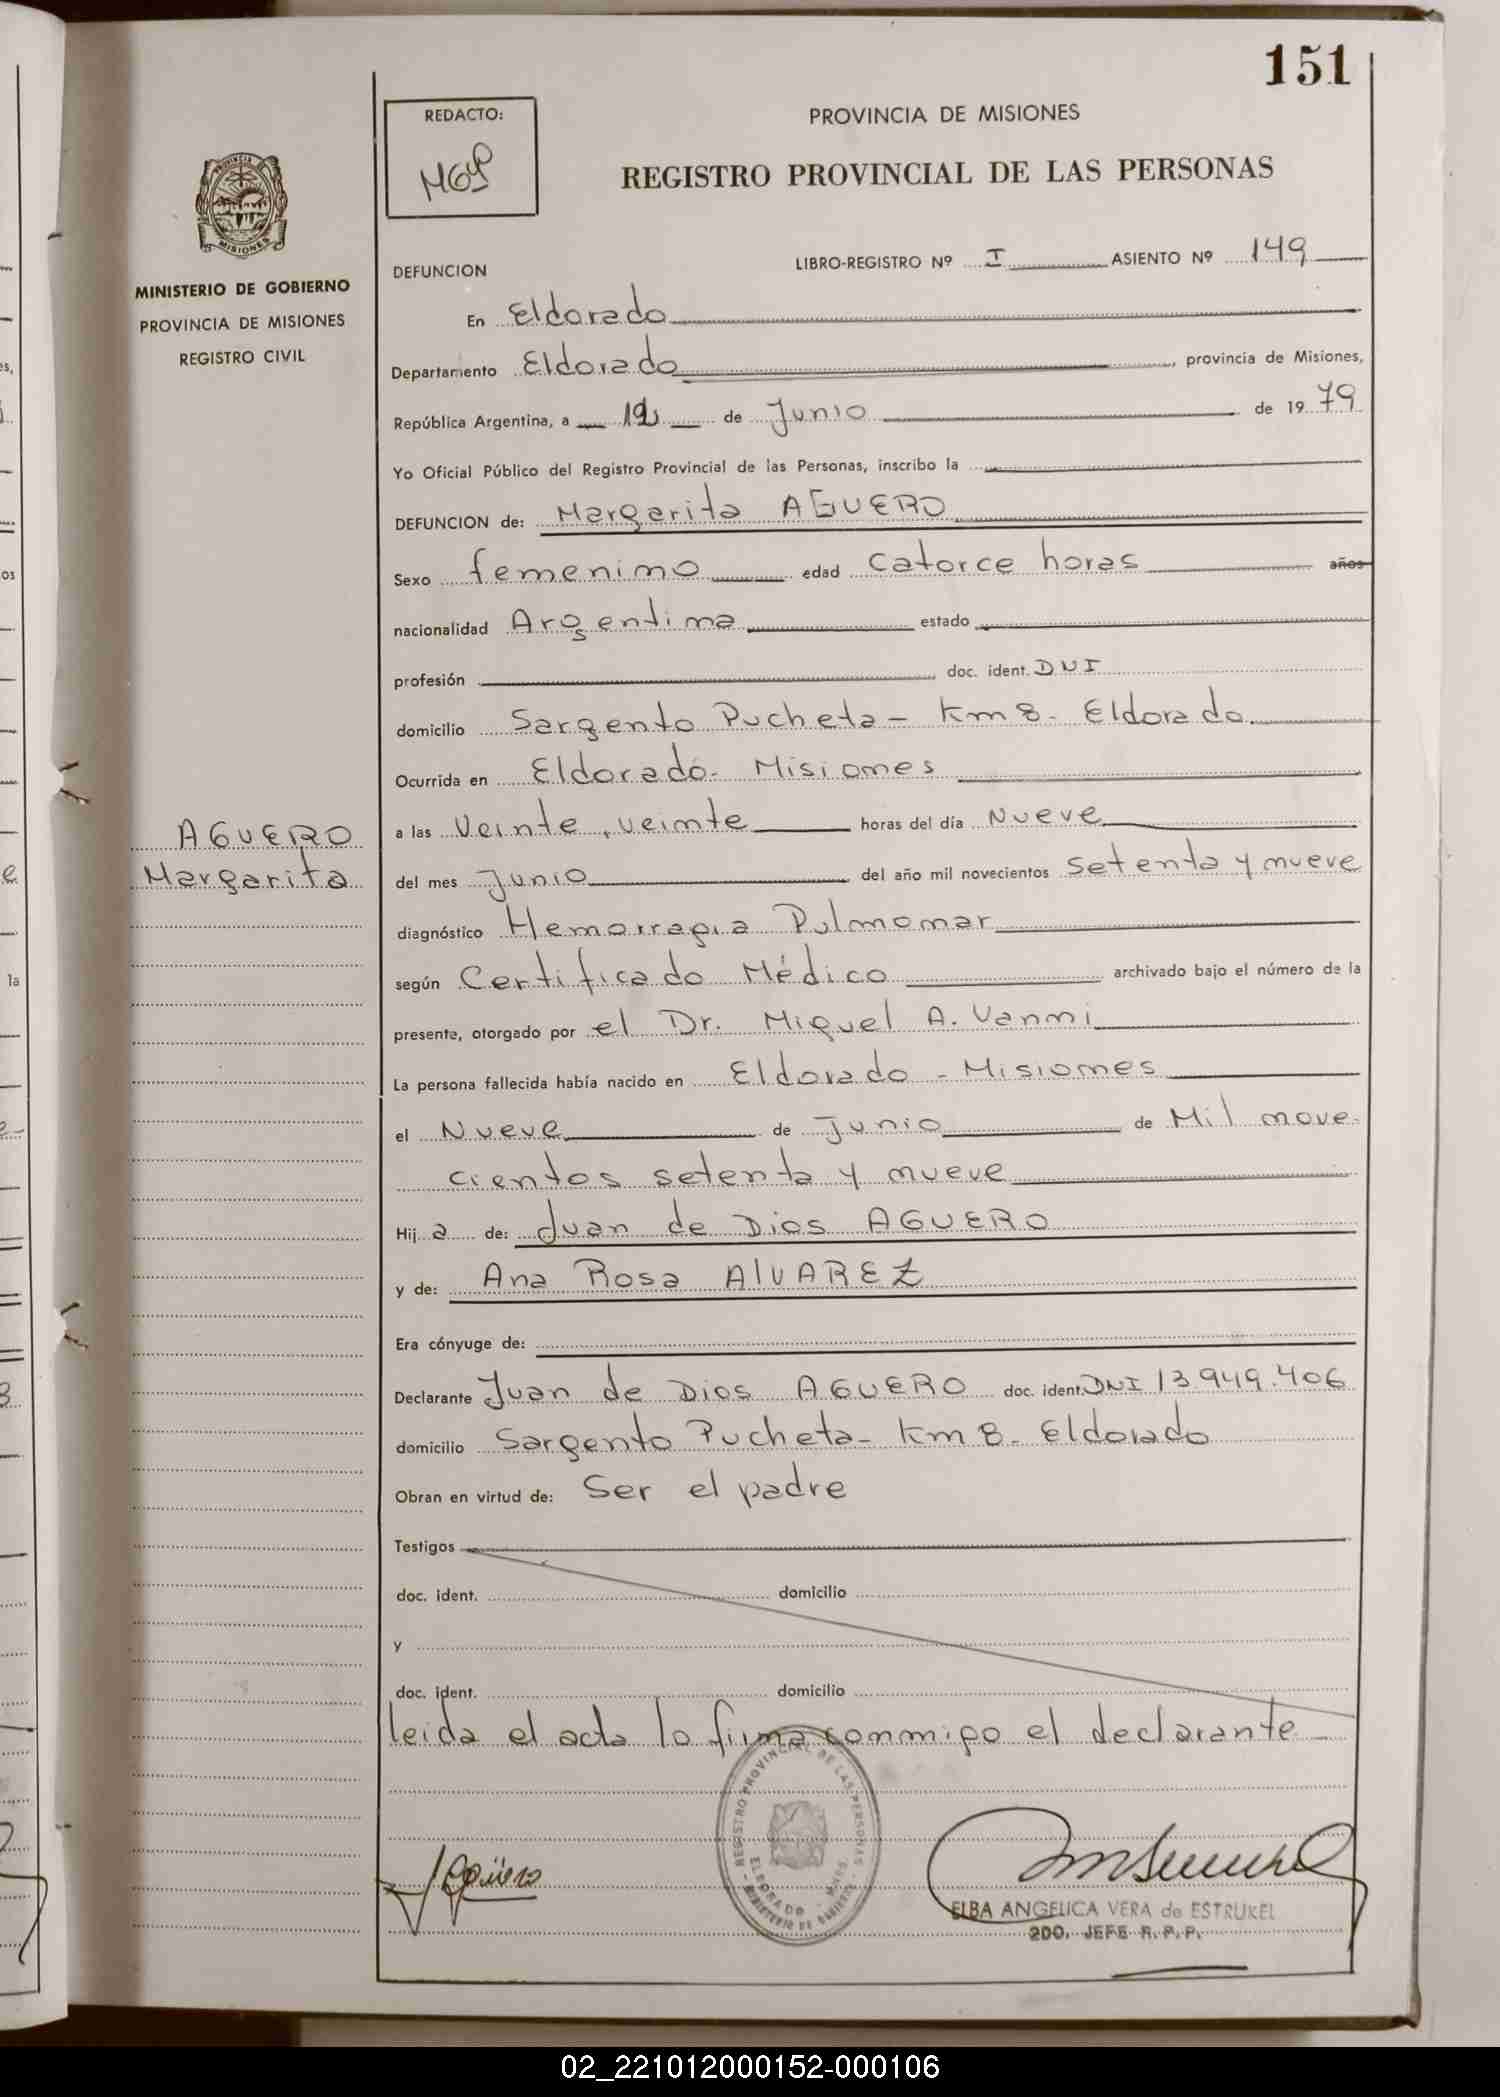 151
REDACTO:
MGP
PROVINCIA DE MISIONES
REGISTRO PROVINCIAL DE LAS PERSONAS
MISIONES
MINISTERIO DE GOBIERNO
PROVINCIA DE MISIONES
REGISTRO CIVIL
DEFUNCION
LIBRO-REGISTRO Nº I ASIENTO Nº 149
En Eldorado
Departamento Eldorado, provincia de Misiones,
República Argentina, a 12 de Junio de 1979
Yo Oficial Público del Registro Provincial de las Personas, inscribo la
DEFUNCION de: Margarita AGUERO
Sexo femenino edad Catorce horas años
nacionalidad Argentina estado
profesión doc. ident. DNI
domicilio Sargento Pucheta - Km 8 - Eldorado
Ocurrida en Eldorado - Misiones
a las Veinte, veinte horas del día Nueve
AGUERO
Margarita
del mes Junio del año mil novecientos setenta y nueve
diagnóstico Hemorragia Pulmonar
según Certificado Médico archivado bajo el número de la
presente, otorgado por el Dr. Miguel A. Vanni
La persona fallecida había nacido en Eldorado - Misiones
el Nueve de Junio de Mil nove-
cientos setenta y nueve
Hija de: Juan de Dios AGUERO
y de: Ana Rosa ALVAREZ
Era cónyuge de:
Declarante Juan de Dios AGUERO doc. ident. DNI 13.949.406
domicilio Sargento Pucheta - Km 8 - Eldorado
Obran en virtud de: Ser el padre
Testigos
doc. ident. domicilio
y
doc. ident. domicilio
leida el acta la firma conmigo el declarante
REGISTRO PROVINCIAL DE LAS PERSONAS
ELDORADO - MNES.
MINISTERIO DE GOBIERNO
J Agüero
ELBA ANGELICA VERA de ESTRUKEL
2DO. JEFE R.P.P.
02_221012000152-000106